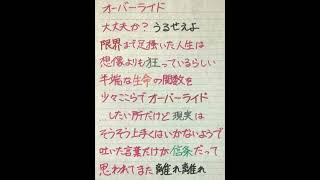 オーバーライド
大丈夫か？うるせえよ
限界まで足掻いた人生は
想像よりも狂っているらしい
半端な生命の関数を
少々ここらでオーバーライド
…したい所だけど現実は
そうそう上手くはいかないようで
吐いた言葉だけが信条だって
思われてまた離れ離れ